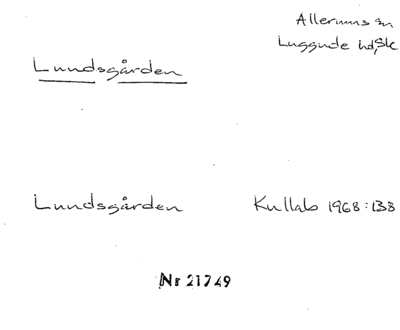 Allerums sn
Luggude hd, Sk
Lundsgården
Lundsgården Kullabo 1968:138
Nr 21749